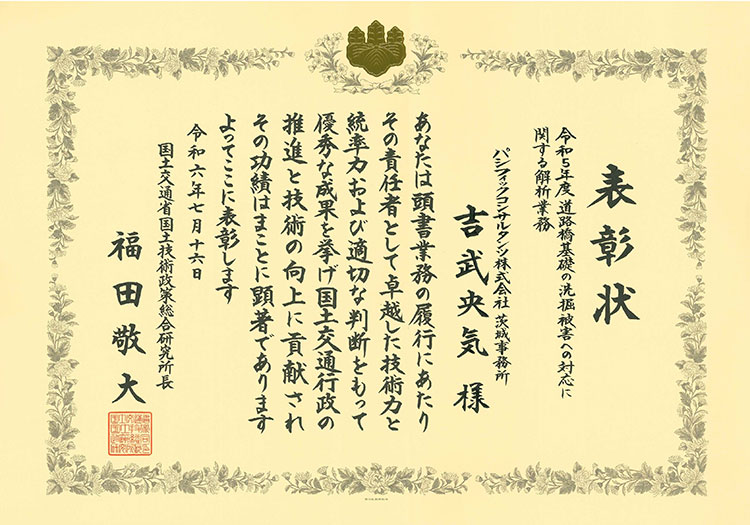 表彰状
令和5年度 道路橋基礎の洗掘被害への対応に
関する解析業務
パシフィックコンサルタンツ株式会社 茨城事務所
吉武央気 様
あなたは頭書業務の履行にあたり
その責任者として卓越した技術力と
統率力および適切な判断をもって
優秀な成果を挙げ国土交通行政の
推進と技術の向上に貢献され
その功績はまことに顕著であります
よってここに表彰します
令和六年七月十六日
国土交通省国土技術政策総合研究所長
福田敬大